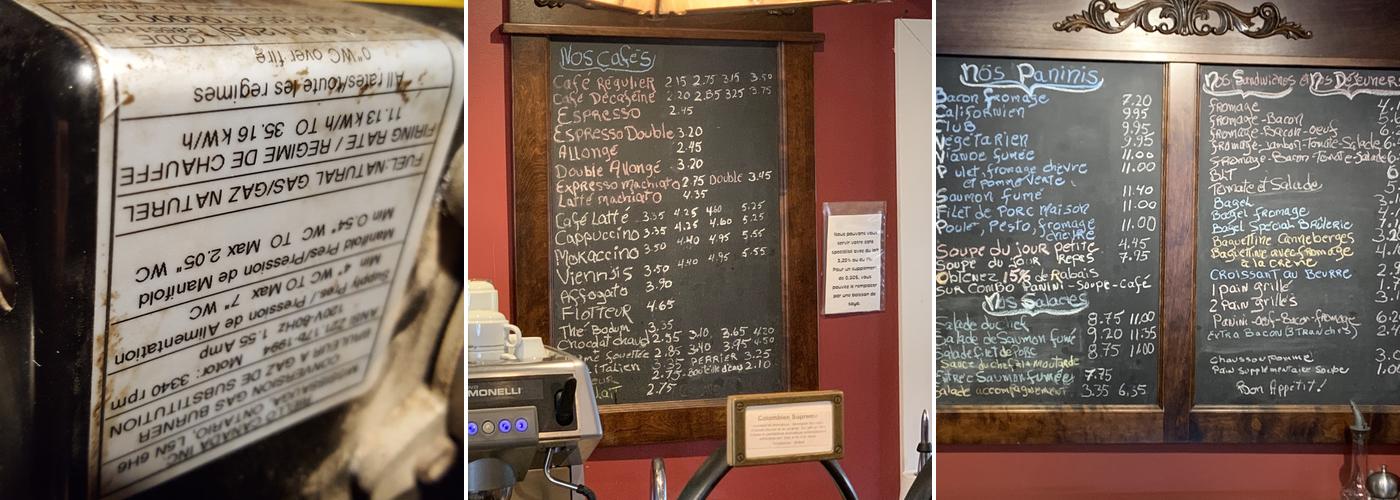 CANADA INC.
ONTARIO, L5N 6H6
CONVERSION GAS BURNER
GAZ DE SUBSTITUTION
Motor: 3340 rpm
120V-60HZ 1.55 Amp
Supply Pres./ Pression de Alimentation
Min 4" WC TO Max 7" WC
Manifold Pres/Pression de Manifold
Min 0.54" WC TO Max 2.05" WC
FUEL:NATURAL GAS/GAZ NATUREL
FIRING RATE / REGIME DE CHAUFFE
11.13 kW/h TO 35.16 kW/h
All rates/toute les regimes
0"WC over fire
CODE
Nos Cafés
Café Régulier 2.15 2.75 3.15 3.50
Café Décaféiné 2.20 2.85 3.25 3.75
Espresso 2.45
Espresso Double 3.20
Allongé 2.45
Double Allongé 3.20
Expresso machiato 2.75 Double 3.45
Latté machiato 4.35
Café Latté 3.35 4.25 4.60 5.25
Cappuccino 3.35 4.25 4.60 5.25
Mokaccino 3.50 4.40 4.95 5.55
Viennois 3.50 4.40 4.95 5.55
Affogato 3.90
Flotteur 4.65
Thé Bodum 3.35
Chocolat chaud 2.55 3.10 3.65 4.20
Souflée 2.85 3.40 3.95 4.50
italien PERRIER 3.25
2.75 Bouteille d'eau 2.10
Lait 2.75
Nous pouvons vous
servir votre café
spécialisé avec du lait
3,25% ou du 1%.
Pour un supplément
de 0,50$, vous
pouvez le remplacer
par une boisson de
soya.
MONELLI
Colombien Supremo
Nos Paninis
Bacon fromage 7.20
Californien 9.95
Club 9.95
Végétarien 9.95
Viande fumée 11.00
Poulet, fromage chèvre 11.00
et pomme verte
Saumon fumé 11.40
Filet de Porc maison 11.00
Poulet, Pesto, fromage 11.00
chèvre
Soupe du jour petite 4.45
Soupe du jour Repas 7.95
Obtenez 15% de Rabais
sur combo Panini-Soupe-café
Nos Salades
Salade du chef 8.75 11.00
Salade de Saumon fumé 9.20 11.55
Salade filet de Porc 8.75 11.00
Sauce du chef à la Moutarde
Entrée Saumon fumée 7.75
Salade accompagnement 3.35 6.35
Nos Sandwichs et Nos Déjeuner
fromage
fromage-Bacon
fromage-Bacon-oeuf
fromage-Jambon-Tomate-Salade
fromage-Bacon-Tomate-Salade
BLT
Tomate et Salade
Bagel
Bagel fromage
Bagel Spécial-Brûlerie
Baguettine Canneberges
Baguettine avec fromage
à la crème
Croissant au Beurre
1 pain grillé
2 Pain grillés
Panini-oeuf-Bacon-fromage
Extra Bacon (3 Tranches)
Chausson pomme
Pain supplémentaire soupe
Bon Appétit!